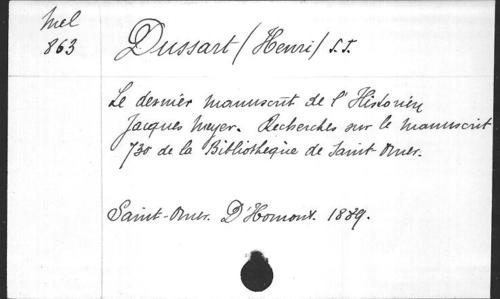 Mel
863
Dussart / Henri / S.J.
Le dernier manuscrit de l'Historien
Jacques Meyer. Recherches sur le manuscrit
730 de la Bibliothèque de Saint-Omer.
Saint-Omer. D'Homont. 1889.